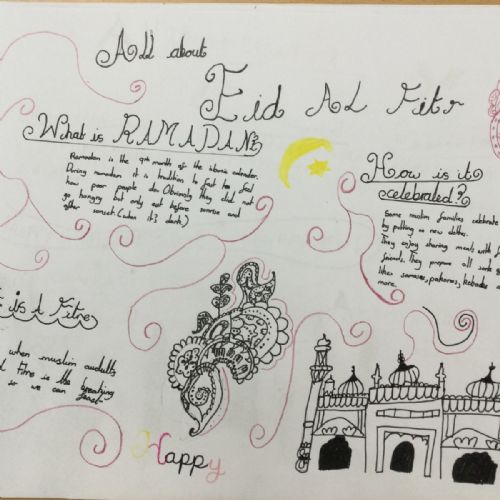 All about
Eid Al Fitr
What is RAMADAN?
Ramadan is the 9th month of the islamic calendar.
During ramadan it is tradition to fast to feel
how poor people do. Obviously they did not
go hungry but only eat before sunrise and
after sunset (when it's dark)
How is it
celebrated?
Some muslim families celebrate
by putting on new clothes.
They enjoy sharing meals with f
friends. They prepare all sorts
likes samosas, pakoras, kebabs
more.
is
Fitr
when muslim
is the breaking
we can feast.
Happy